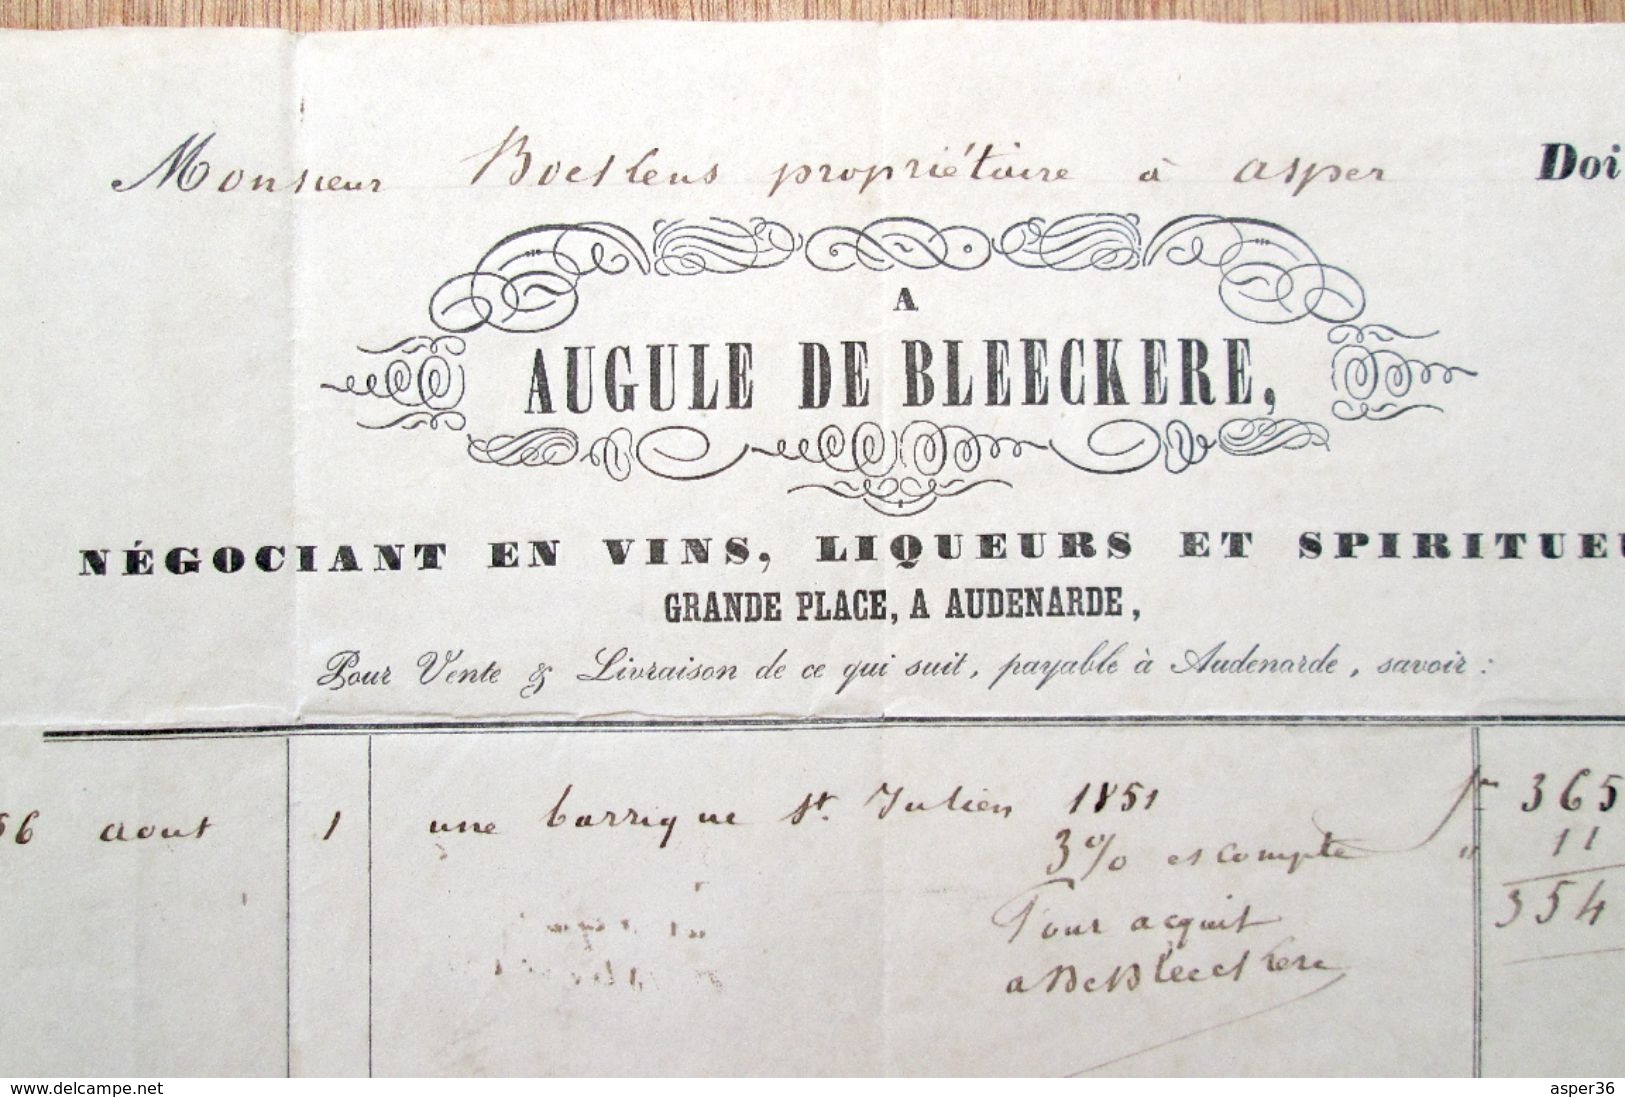 Monsieur Boeslens propriétaire à asper Doi
A
AUGULE DE BLEECKERE,
NÉGOCIANT EN VINS, LIQUEURS ET SPIRITUEU
GRANDE PLACE, A AUDENARDE,
Pour Vente & Livraison de ce qui suit, payable à Audenarde, savoir :
56 aout 1 une barrique St. Julien 1851 fr 365
3% escompte " 11
354
Pour acquit
a DeBleeckere
delcampe.net asper36